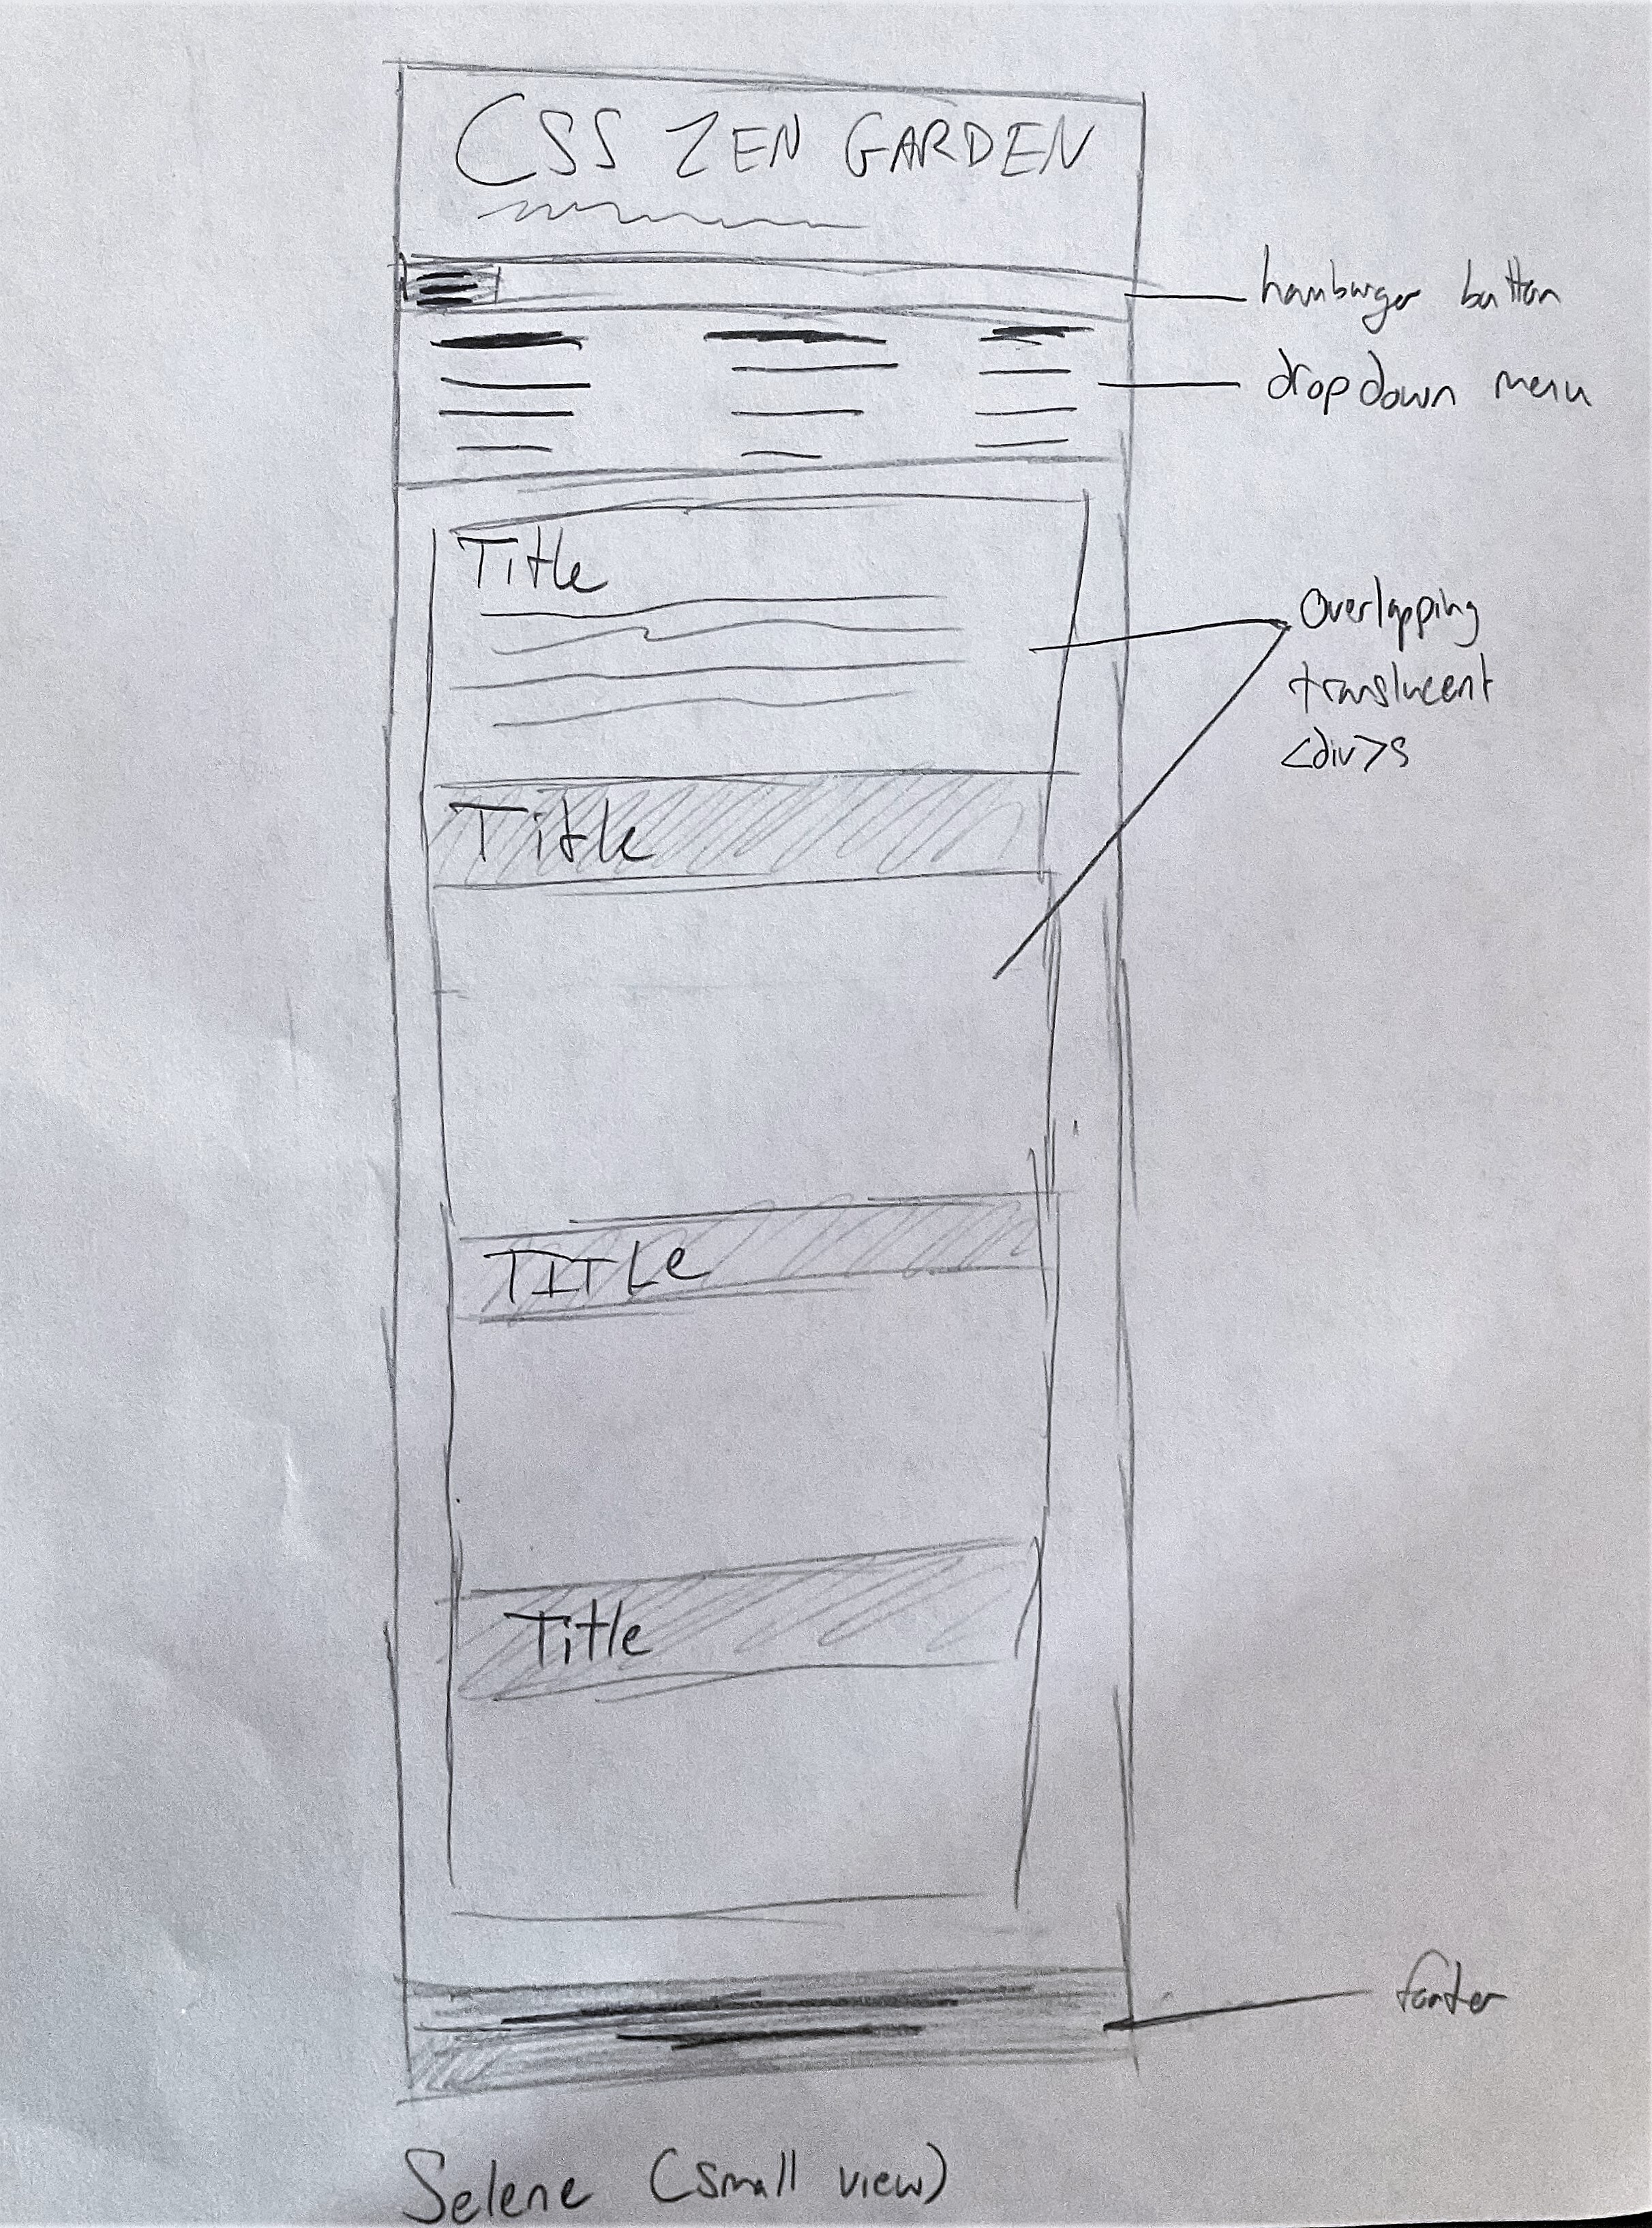 CSS ZEN GARDEN
hamburger button
dropdown menu
Title
Overlapping
translucent
<div>s
Title
TITLe
Title
footer
Selene (small view)